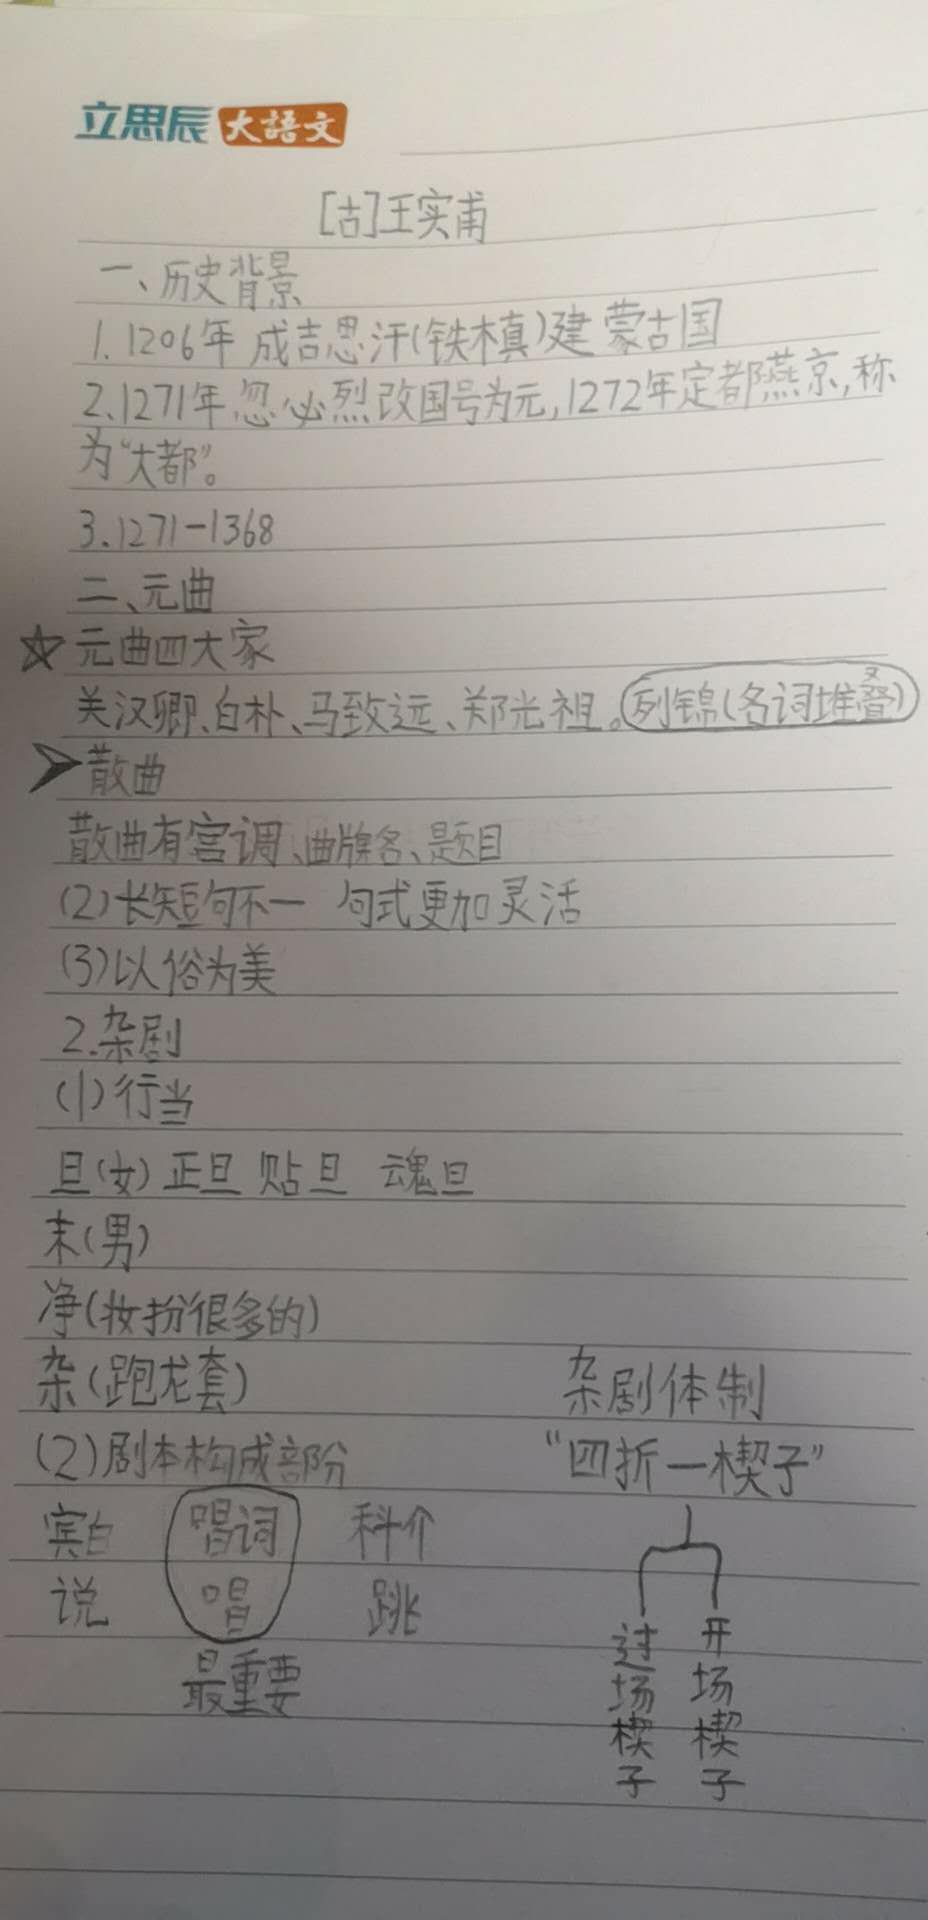 立思辰大語文
[古]王实甫
一、历史背景
1.1206年 成吉思汗(铁木真)建 蒙古国
2.1271年忽必烈改国号为元,1272年定都燕京,称
为“大都”。
3.1271-1368
二、元曲
☆元曲四大家
关汉卿、白朴、马致远、郑光祖。列锦(名词堆叠)
➢散曲
散曲有宫调、曲牌名、题目
(2)长短句不一 句式更加灵活
(3)以俗为美
2.杂剧
(1)行当
旦(女) 正旦 贴旦 魂旦
末(男)
净(妆扮很多的)
杂(跑龙套)
(2)剧本构成部份
宾白 唱词 科介
说 唱 跳
最重要
杂剧体制
“四折一楔子”
过场楔子
开场楔子